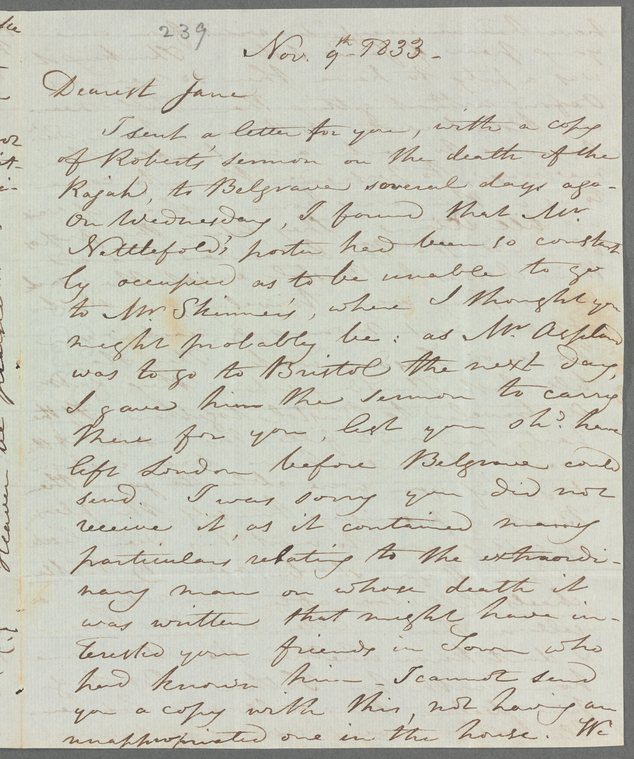 239
Nov. 9th 1833-
Dearest Jane
I sent a letter for you, with a copy
of Robert's sermon on the death of the
Rajah, to Belgrave several days ago-
On Wednesday, I found that Mr.
Nettlefold's porter had been so constant
ly occupied as to be unable to go
to Mr Skinner's, where I thought you
might probably be: as Mr. Aspland
was to go to Bristol the next day,
I gave him the sermon to carry
there for you, lest you shd. have
left London before Belgrave could
send. I was sorry you did not
receive it, as it contained many
particulars relating to the extraordi-
nary man on whose death it
was written that might have in-
terested your friends in Town who
had known him - I cannot send
you a copy with this, not having an
unappropriated one in the house. We